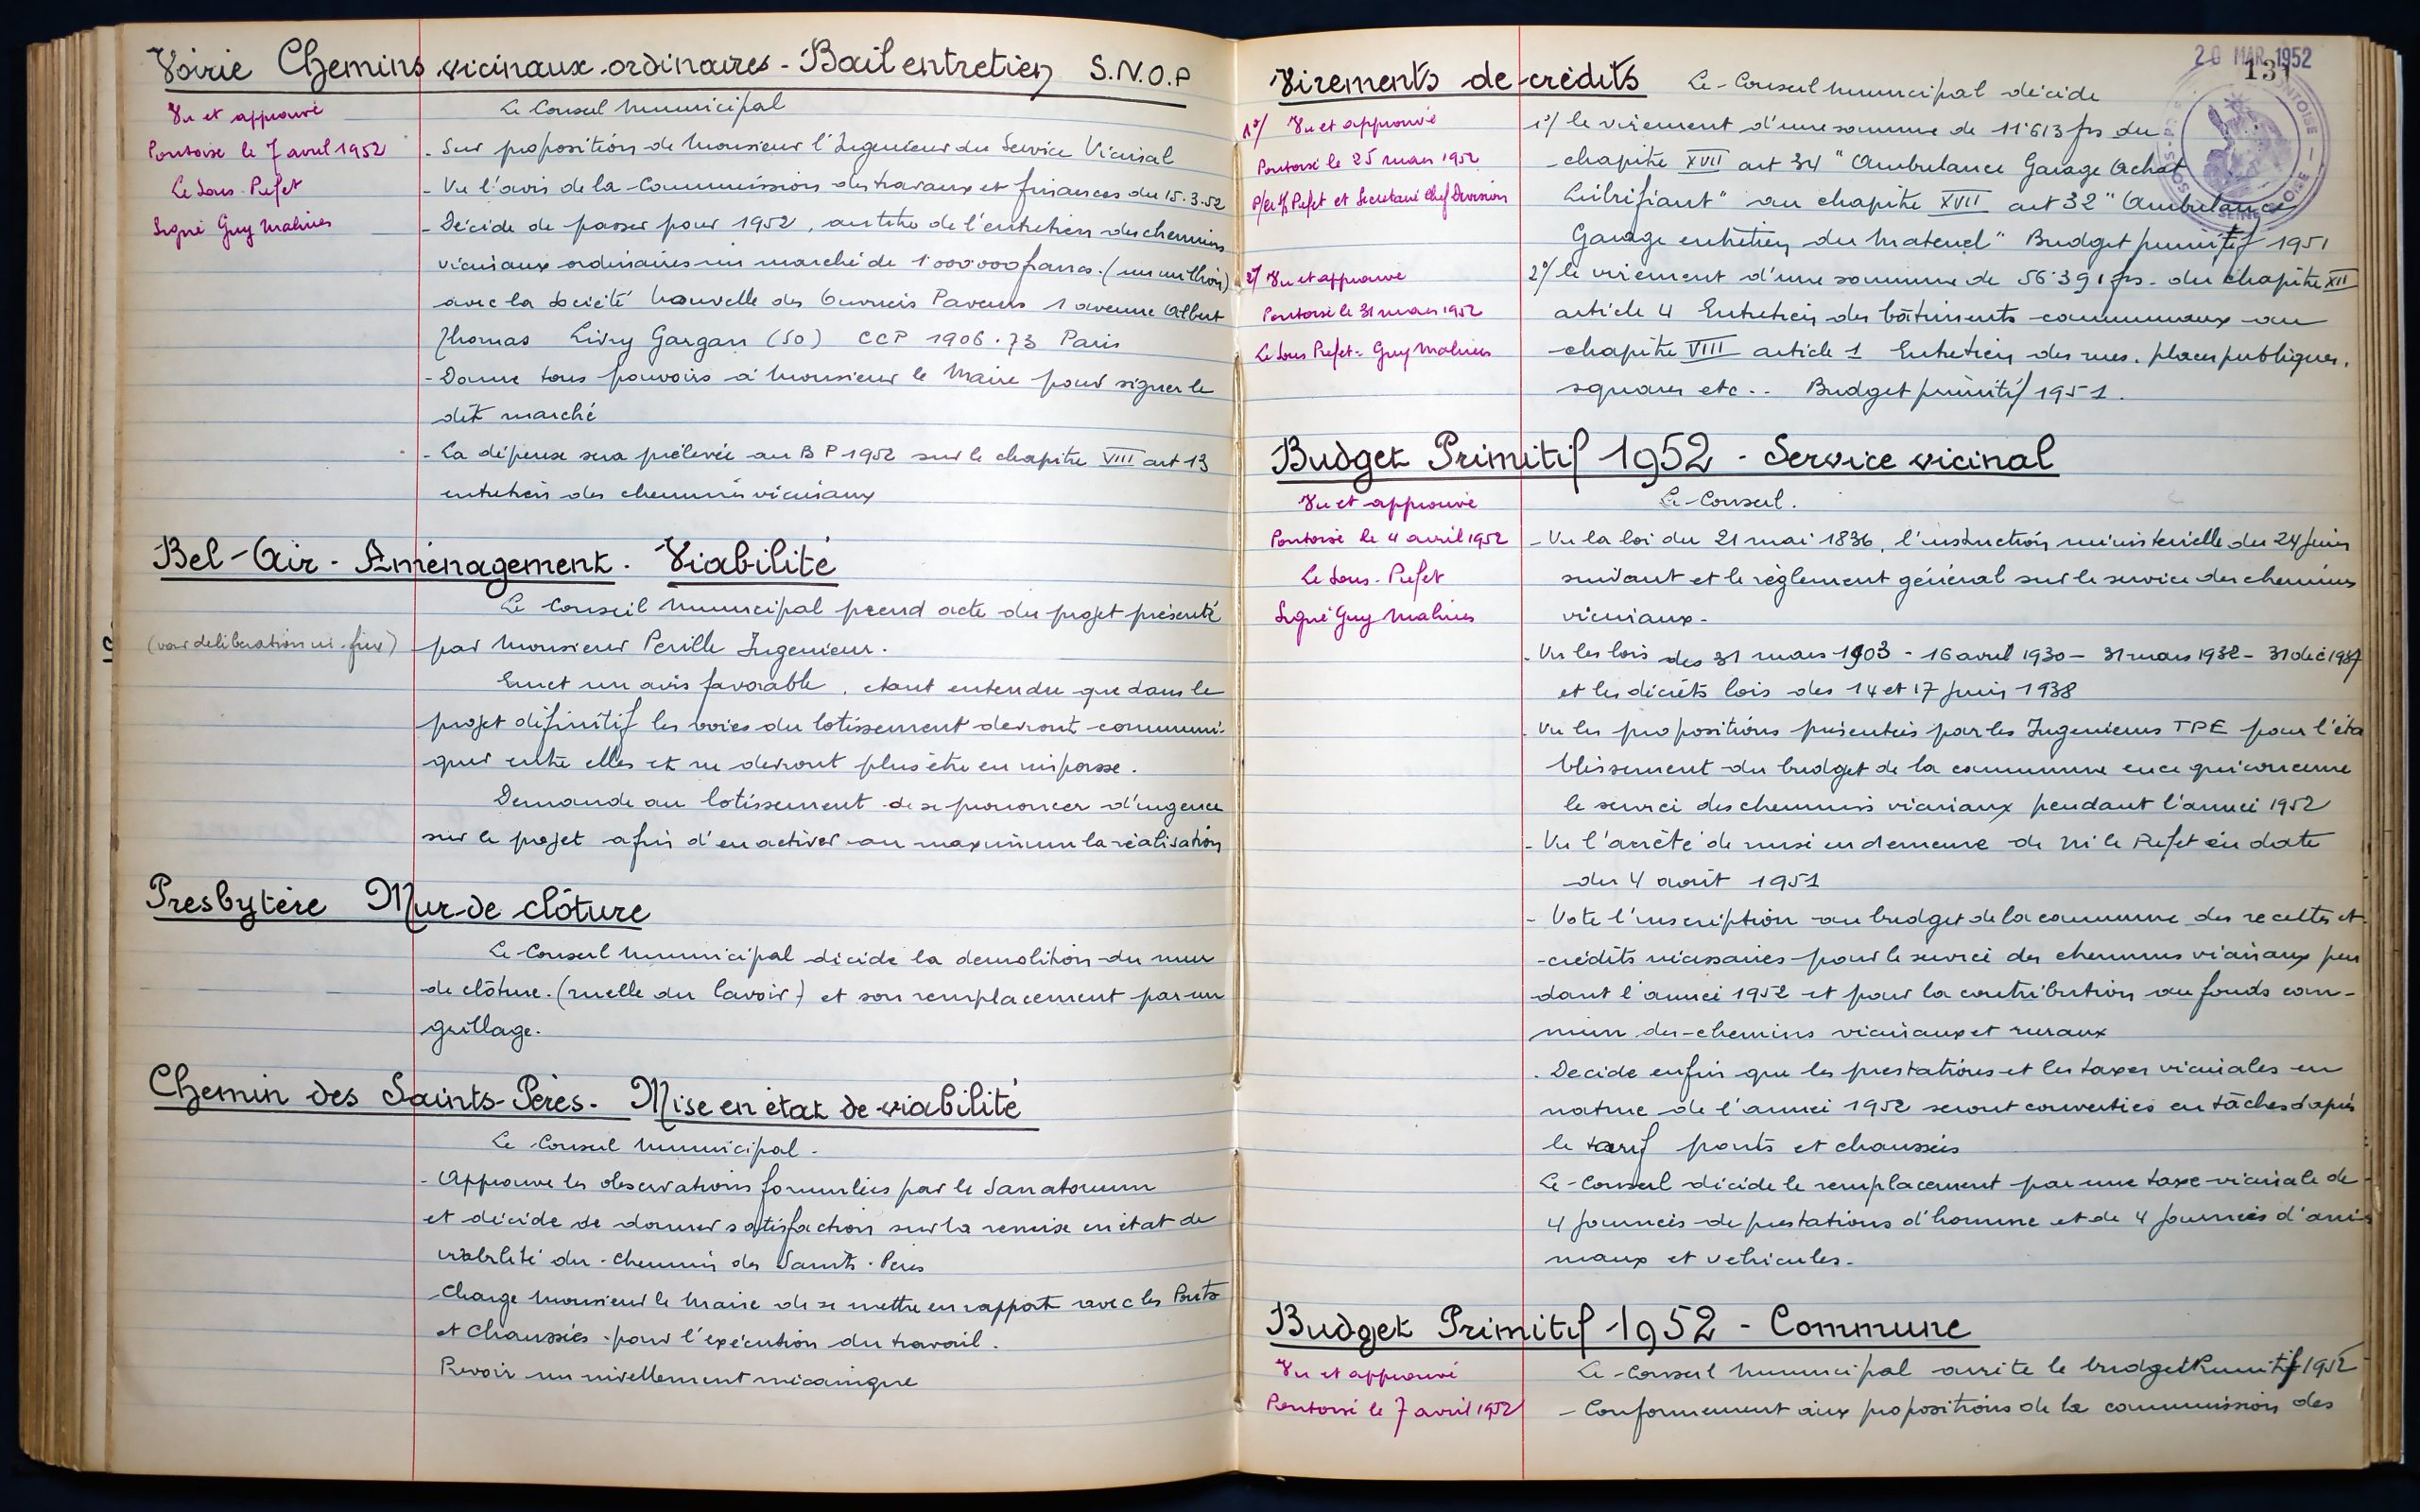 Voirie Chemins vicinaux ordinaires - Bail entretien S.N.O.P
Vu et approuvé
Pontoise le 7 avril 1952
Le Sous-Préfet
Signé Guy Malines
Le Conseil Municipal
- Sur proposition de Monsieur l'Ingenieur du Service Vicinal
- Vu l'avis de la Commission des travaux et finances du 15.3.52
- Décide de passer pour 1952, au titre de l'entretien des chemins
vicinaux ordinaires un marché de 1.000.000 francs. (un million)
avec la Société Nouvelle des Ouvriers Paveurs 1 avenue Albert
Thomas Livry Gargan (SO) CCP 1906.73 Paris
- Donne tous pouvoirs à Monsieur le Maire pour signer le
dit marché
- La dépense sera prélevée au B P 1952 sur le chapitre VIII art 13
entretien des chemins vicinaux
Bel-Air - Aménagement. Viabilité
(voir deliberation in-fine)
Le Conseil Municipal prend acte du projet présenté
par Monsieur Perille Ingenieur.
Emet un avis favorable, étant entendu que dans le
projet définitif les voies du lotissement devront communi-
quer entre elles et ne devront plus être en impasse.
Demande au lotissement de se prononcer d'urgence
sur le projet afin d'en activer au maximum la réalisation
Presbytère Mur de clôture
Le Conseil Municipal décide la demolition du mur
de clôture. (ruelle du lavoir) et son remplacement par un
grillage.
Chemin des Saints-Pères - Mise en état de viabilité
Le Conseil Municipal.
- Approuve les observations formulées par le Sanatorium
et décide de donner satisfaction sur la remise en état de
viabilité du chemin des Saints-Peres
- Charge Monsieur le Maire de se mettre en rapport avec les Ponts
et Chaussées pour l'exécution du travail.
Prévoir un nivellement mécanique
20 MAR. 1952
131
Virements de crédits Le Conseil Municipal décide
1°/ Vu et approuvé
Pontoise le 25 mars 1952
P/le S/Préfet et Secretaire Chef Division
2°/ Vu et approuvé
Pontoise le 31 mars 1952
Le Sous Préfet - Guy Malines
1°/ le virement d'une somme de 11.613 frs du
chapitre XVII art 34 "Ambulance Garage Achat
Lubrifiant" au chapitre XVII art 32 "Ambulance
Garage entretien du Materiel" Budget primitif 1951
2°/ le virement d'une somme de 56.391 frs. du chapitre XII
article 4 Entretien des bâtiments communaux au
chapitre VIII article 1 Entretien des rues, places publiques,
squares etc.. Budget primitif 1951.
Budget Primitif 1952 - Service vicinal
Vu et approuvé
Pontoise le 4 avril 1952
Le Sous-Préfet
Signé Guy Malines
Le Conseil.
- Vu la loi du 21 mai 1836, l'instruction ministerielle du 24 Juin
suivant et le règlement général sur le service des chemins
vicinaux.
- Vu les lois des 31 mars 1903 - 16 avril 1930 - 31 mars 1932 - 31 déc 1937
et les décrets lois des 14 et 17 Juin 1938
- Vu les propositions présentées par les Ingenieurs TPE pour l'éta
blissement du budget de la commune en ce qui concerne
le service des chemins vicinaux pendant l'année 1952
- Vu l'arrêté de mise en demeure de M. le Préfet en date
du 4 août 1951
- Vote l'inscription au budget de la commune des recettes et
crédits nécessaires pour le service des chemins vicinaux pen
dant l'année 1952 et pour la contribution au fonds com-
mun des chemins vicinaux et ruraux
- Decide enfin que les prestations et les taxes vicinales en
nature de l'année 1952 seront converties en tâches d'après
le tarif ponts et chaussées
Le Conseil décide le remplacement par une taxe vicinale de
4 journées de prestations d'homme et de 4 journées d'ani-
maux et vehicules.
Budget Primitif 1952 - Commune
Vu et approuvé
Pontoise le 7 avril 1952
Le Conseil Municipal arrête le budget Primitif 1952
- Conformement aux propositions de la commission des